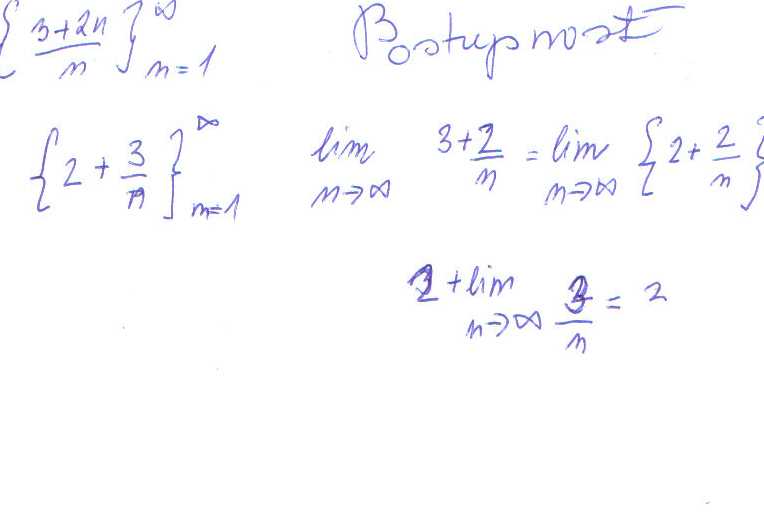 { (3+2n)/n }_{n=1}^{∞} Postupnost
{ 2 + 3/n }_{n=1}^{∞} lim_{n→∞} 3+2/n = lim_{n→∞} { 2 + 2/n }
2 + lim_{n→∞} 3/n = 2